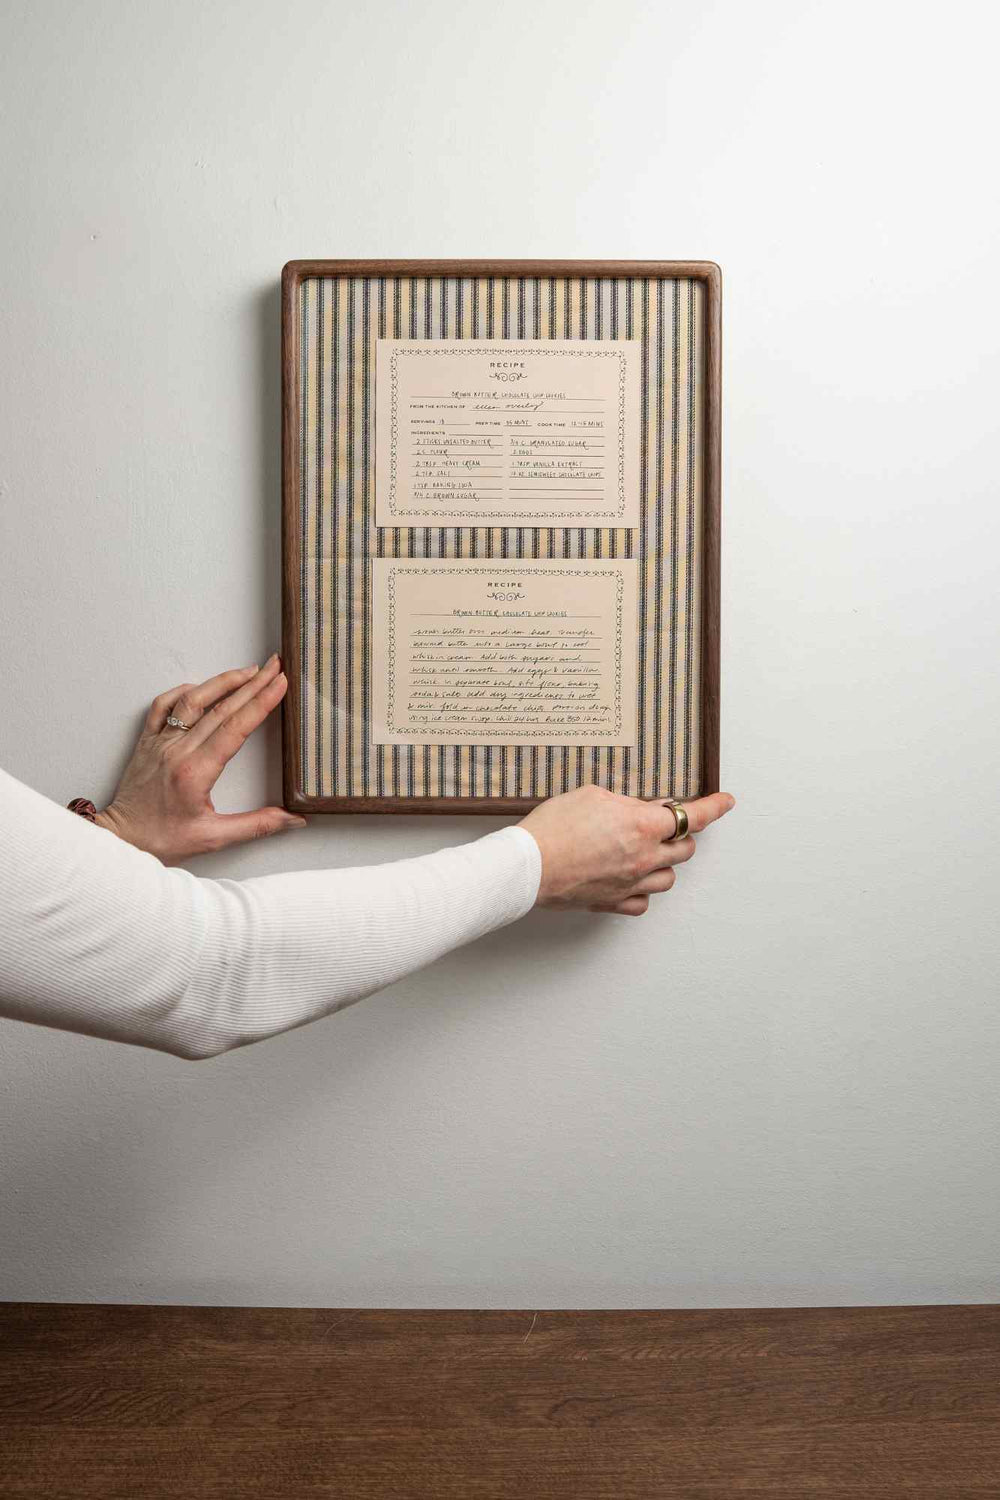 RECIPE
BROWN BUTTER CHOCOLATE CHIP COOKIES
FROM THE KITCHEN OF ellen overlay
SERVINGS 18 PREP TIME 35 MINS COOK TIME 12-15 MINS
INGREDIENTS
2 STICKS UNSALTED BUTTER 3/4 C. GRANULATED SUGAR
2 C. FLOUR 2 EGGS
2 TBSP HEAVY CREAM 1 TBSP VANILLA EXTRACT
2 TSP SALT OZ SEMISWEET CHOCOLATE CHIPS
1 TSP BAKING SODA
3/4 C BROWN SUGAR
RECIPE
BROWN BUTTER CHOCOLATE CHIP COOKIES
brown butter over medium heat. transfer
browned butter into a large bowl to cool
whisk in cream. Add both sugars and
whisk until smooth. Add eggs & vanilla
whisk in separate bowl, sift flour, baking
soda & salt. add dry ingredients to wet
& mix. fold in chocolate chips. portion dough
using ice cream scoop. chill Bake 350 12 mins.